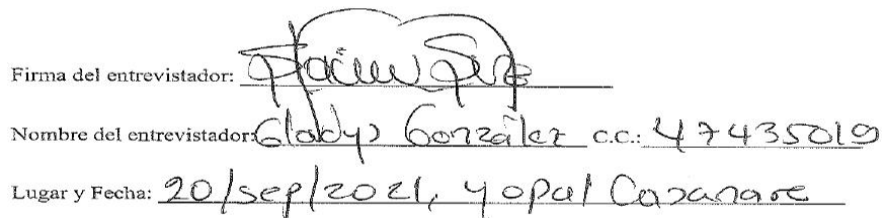 Firma del entrevistador:
Nombre del entrevistador: Gladys González C.C.: 47435019
Lugar y Fecha: 20/sep/2021, Yopal Casanare